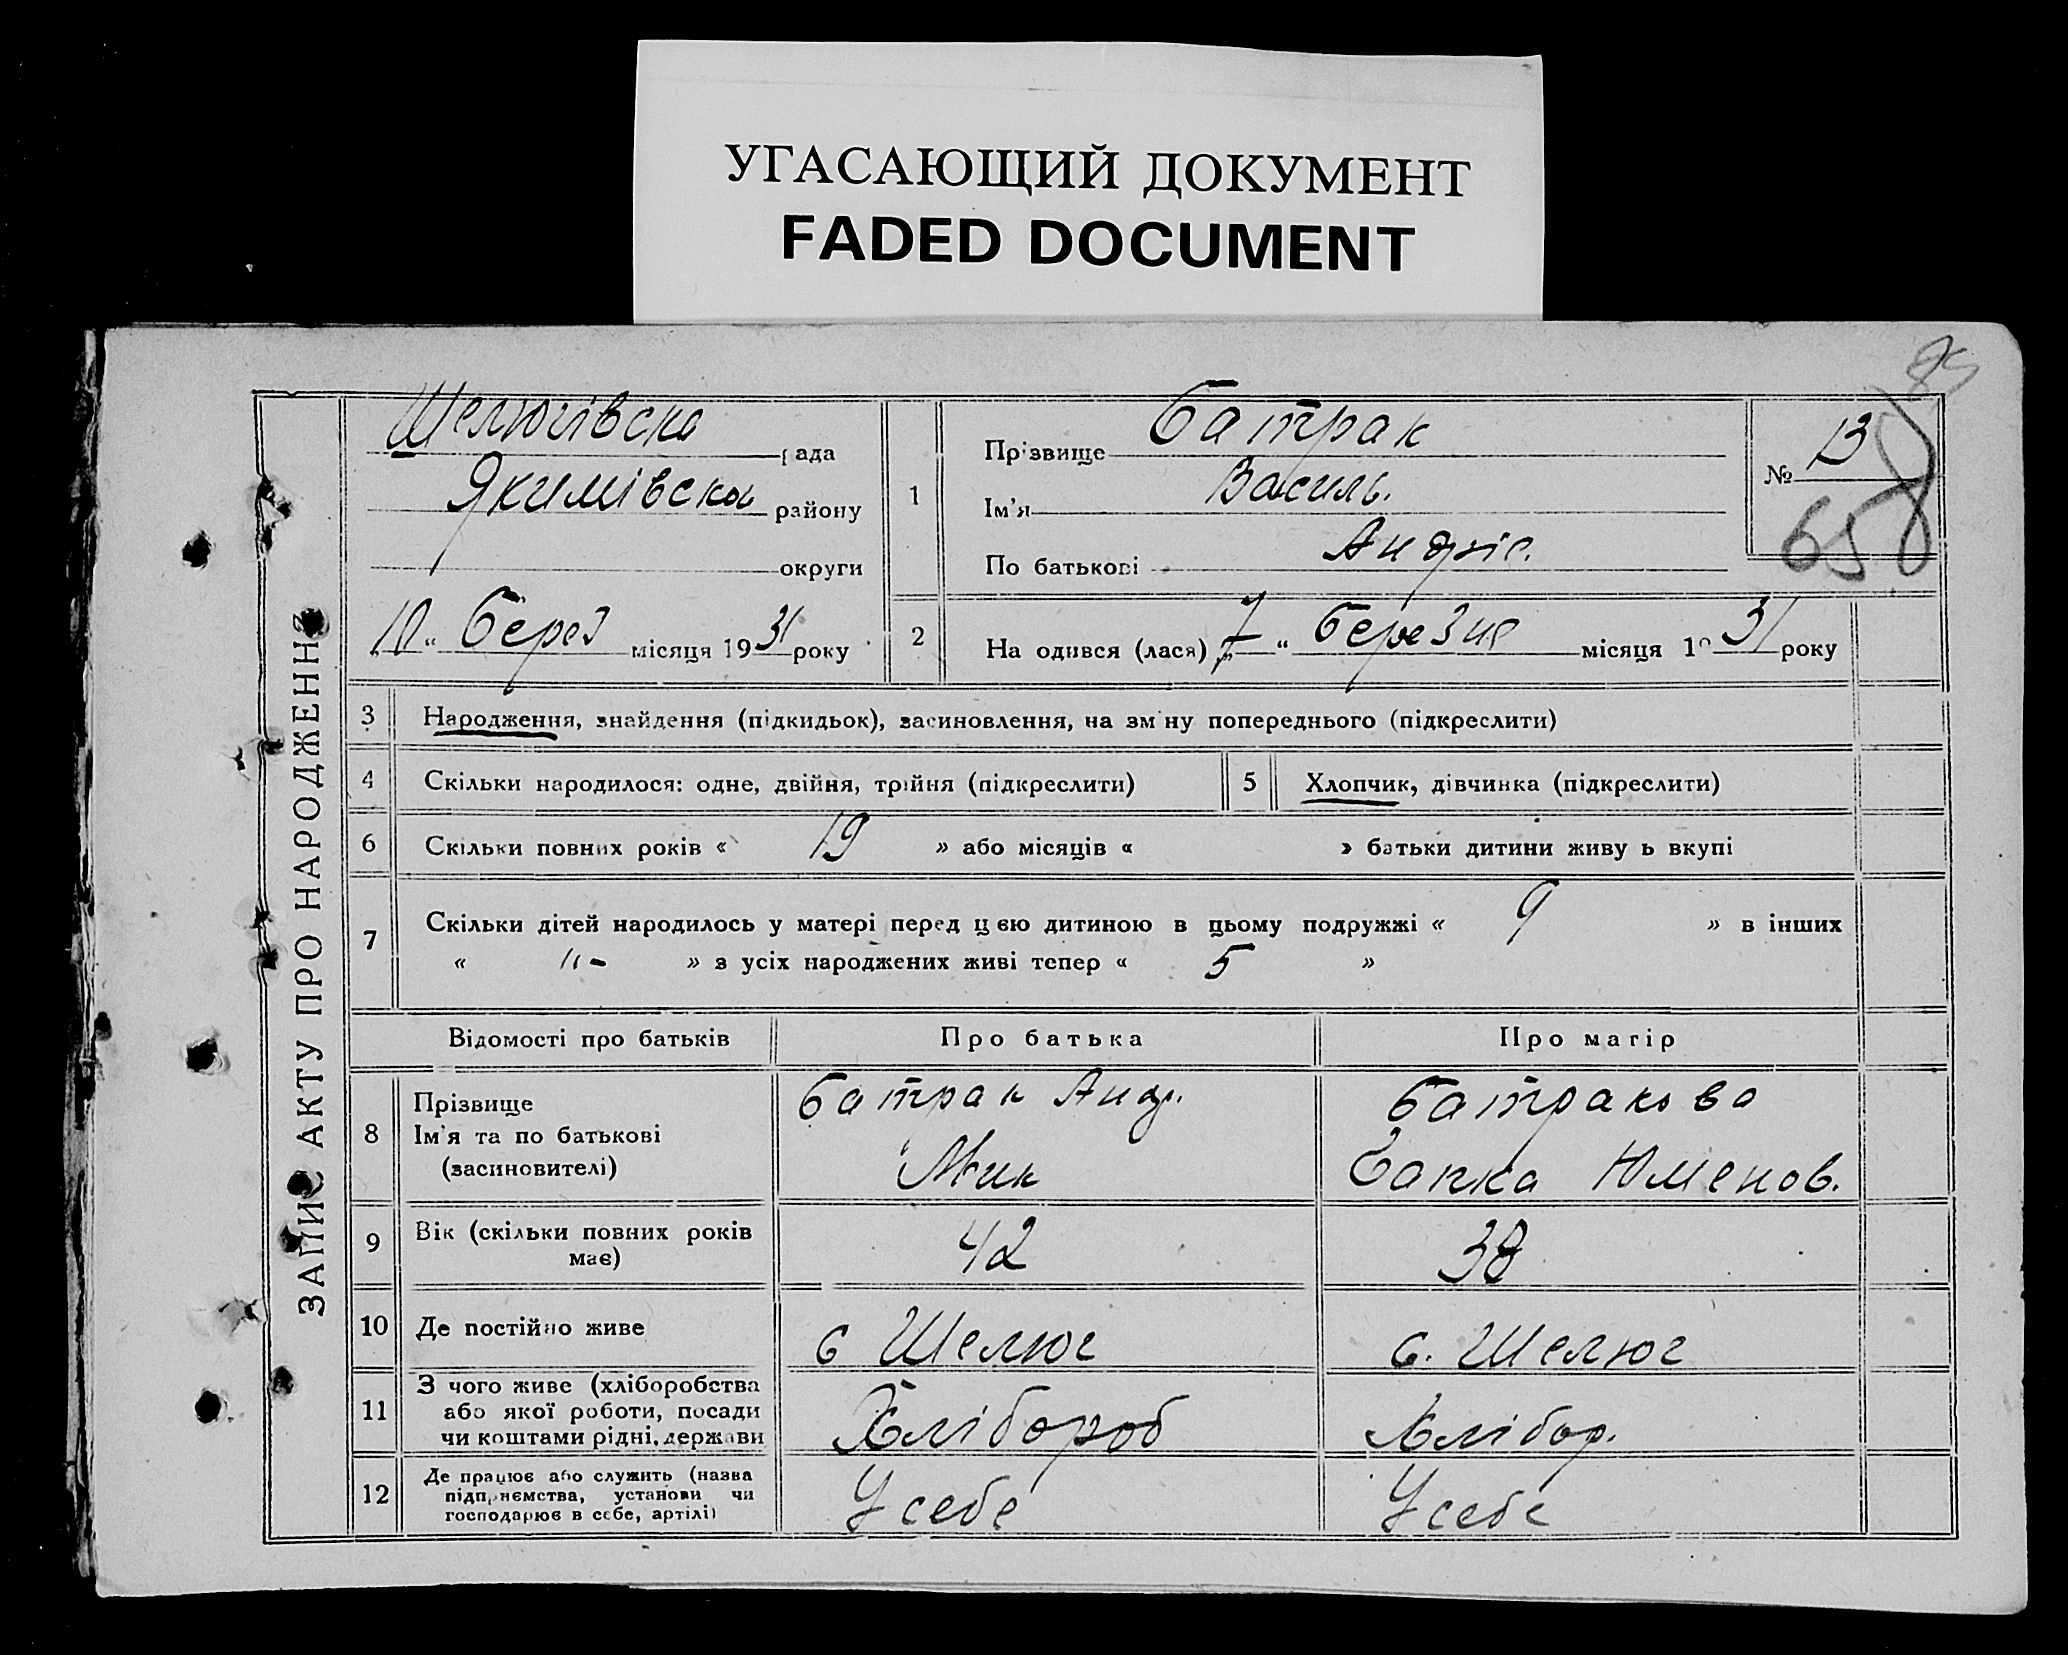 УГАСАЮЩИЙ ДОКУМЕНТ
FADED DOCUMENT
85
ЗАПИС АКТУ ПРО НАРОДЖЕННЯ
Шелюгівська рада
Якимівська району
округи
„10“ берез місяця 1931 року
1
Прізвище Батрак
Ім'я Василь.
По батькові Андріє.
№ 13
658
2 На одився (лася) „7“ березня місяця 1931 року
3 Народження, знайдення (підкидьок), засиновлення, на зміну попереднього (підкреслити)
4 Скільки народилося: одне, двійня, трійня (підкреслити)
5 Хлопчик, дівчинка (підкреслити)
6 Скільки повних років « 19 » або місяців « » батьки дитини живу ь вкупі
7 Скільки дітей народилось у матері перед цією дитиною в цьому подружжі « 9 » в інших
« "- » з усіх народжених живі тепер « 5 »
Відомості про батьків Про батька Про матір
8 Прізвище
Ім'я та по батькові
(засиновителі)
Батрак Андр.
Мик
Батракова
Юменов.
9 Вік (скільки повних років
має)
42
38
10 Де постійно живе
с Шелюг
с. Шелюг
11 З чого живе (хліборобства
або якої роботи, посади
чи коштами рідні, держави
Хлібороб
Хлібор.
12 Де працює або служить (назва
підприємства, установи чи
господарює в себе, артілі)
У себе
У себе